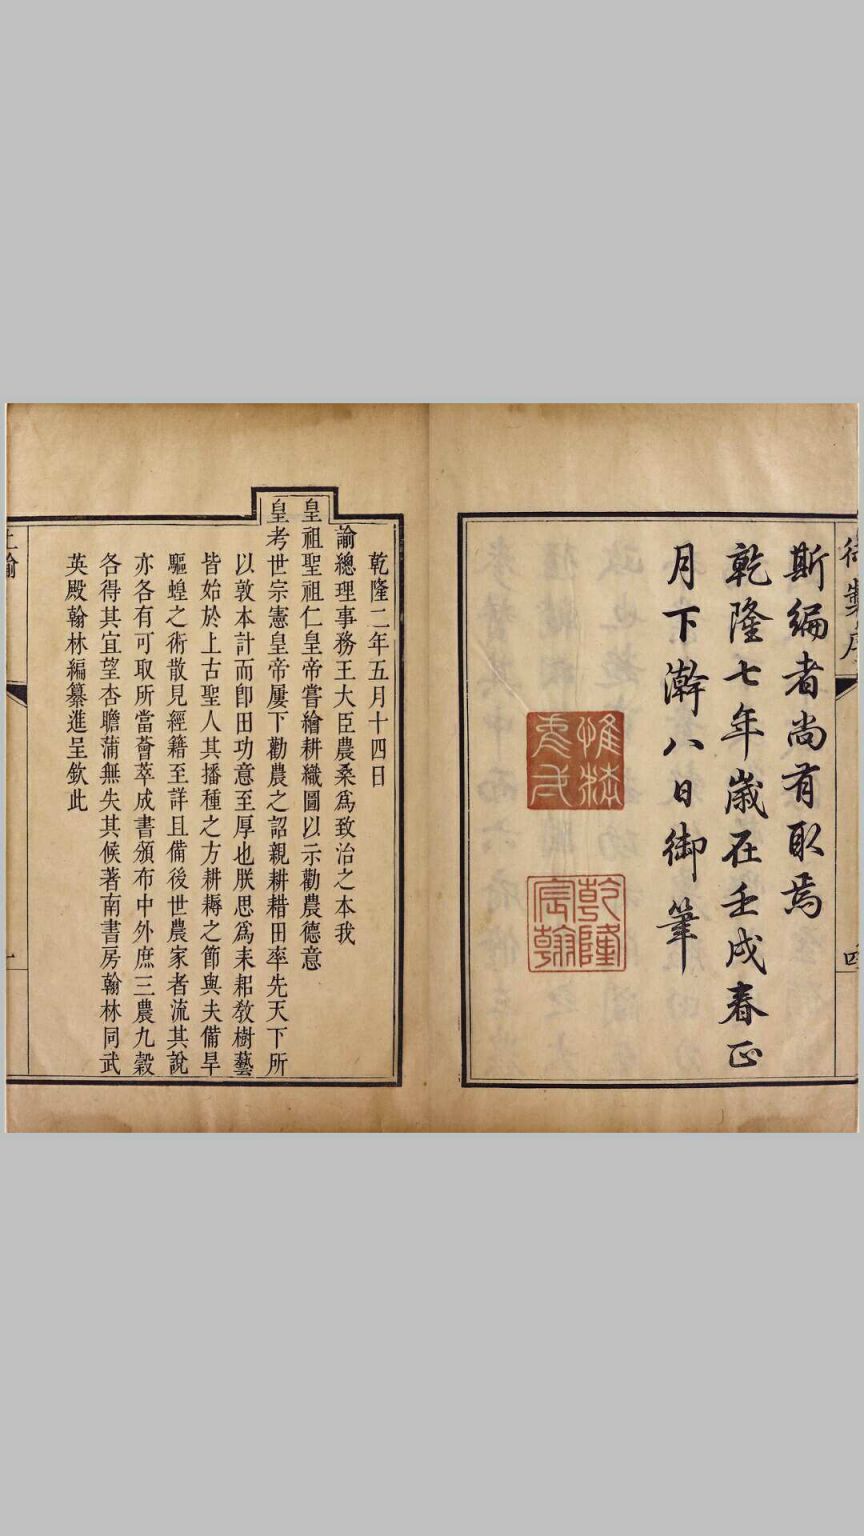 御製序
四
斯編者尚有取焉
乾隆七年歲在壬戌春正
月下澣八日御筆
乾隆宸翰
乾隆二年五月十四日
諭總理事務王大臣農桑爲致治之本我
皇祖聖祖仁皇帝嘗繪耕織圖以示勸農德意
皇考世宗憲皇帝屢下勸農之詔親耕耤田率先天下所
以敦本計而卽田功意至厚也朕思爲耒耜敎樹藝
皆始於上古聖人其播種之方耕耨之節與夫備旱
驅蝗之術散見經籍至詳且備後世農家者流其說
亦各有可取所當薈萃成書頒布中外庶三農九穀
各得其宜望杏瞻蒲無失其候著南書房翰林同武
英殿翰林編纂進呈欽此
上諭
一